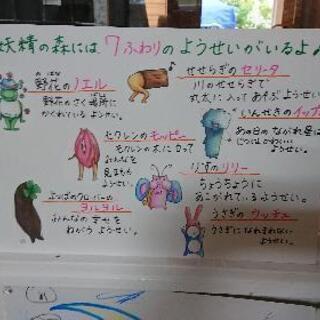 妖精の森には7ふわりのようせいがいるよ♪
野花のノエル
のばな
野花のさく場所に
かくれているようせい。
せせらぎのセリータ
川のせせらぎで
丸太に入ってあそぶようせい
いんせきのイップ
あの日のながれ星は
モクレンのモッピー
モクレンの木に口って
みんなを
見まもる
ようせい。
りすのリリー
ちょうちょうに
あこがれているようせい。
よつばのクローバーの
ヨルヨル
みんなの幸せを
ねがうようせい。
うさぎのウッチェ
うさぎになれきれない
ようせい。